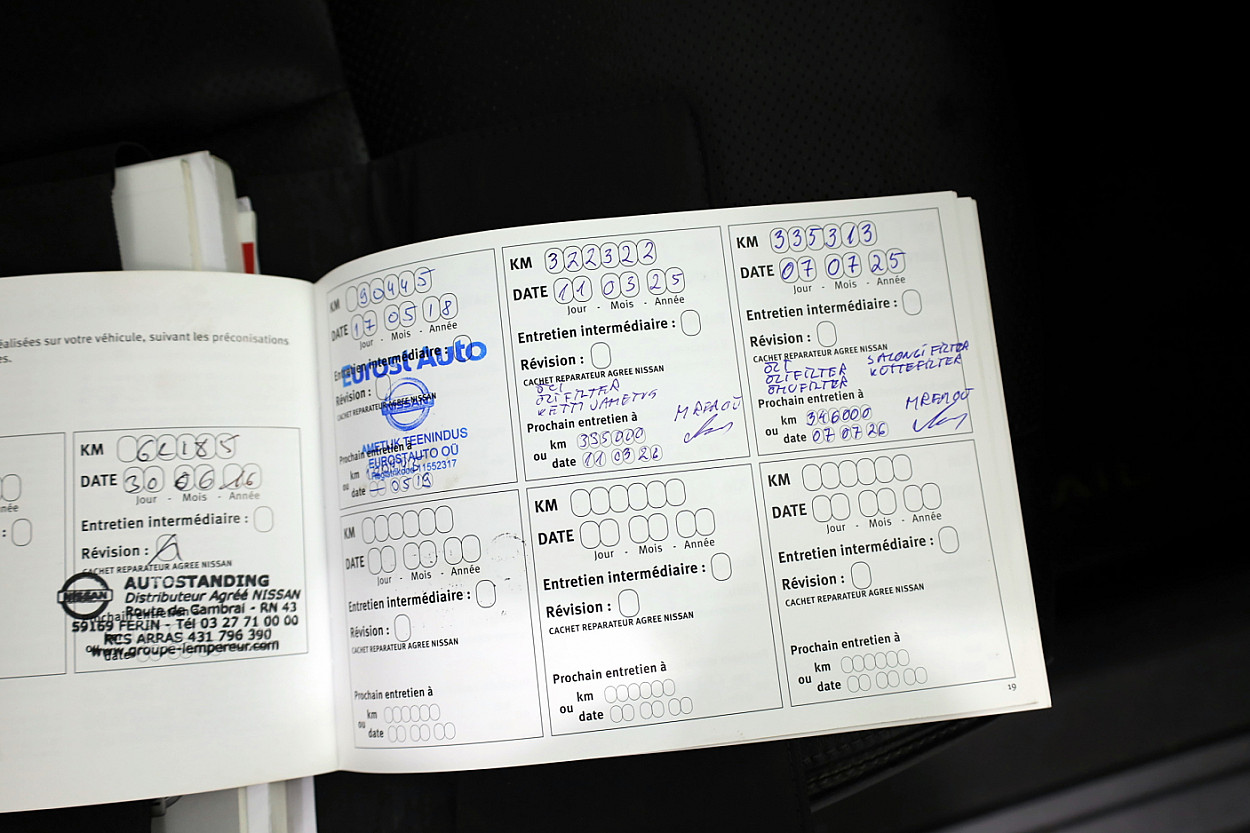 éalisées sur votre véhicule, suivant les préconisations
es.
née
:
KM 62185
DATE 30 06 16
Jour - Mois - Année
Entretien intermédiaire :
Révision :
CACHET REPARATEUR AGREE NISSAN
NISSAN
AUTOSTANDING
Distributeur Agréé NISSAN
Route de Cambrai - RN 43
59169 FERIN - Tél 03 27 71 00 00
RCS ARRAS 431 796 390
www.groupe-lempereur.com
date
KM 90445
DATE 17 05 18
Jour - Mois - Année
Entretien intermédiaire :
Eurost Auto
Révision :
NISSAN
CACHET REPARATEUR AGREE NISSAN
AMETLIK TEENINDUS
Prochain entretien à
EUROSTAUTO OÜ
km
Registrikood 11552317
ou
date 0519
KM 322322
DATE 11 03 25
Jour - Mois - Année
Entretien intermédiaire :
Révision :
CACHET REPARATEUR AGREE NISSAN
ÕLI
ÕLIFILTER
KETTI VAHETUS
Prochain entretien à
km 335000
ou
date 11 03 26
KM 335313
DATE 07 07 25
Jour - Mois - Année
Entretien intermédiaire :
Révision :
CACHET REPARATEUR AGREE NISSAN
ÕLI
ÕLIFILTER
ÕHUFILTER
SALONGI FILTER
KÜTTEFILTER
Prochain entretien à
km 346000
ou
date 07 07 26
KM
DATE
Jour - Mois - Année
Entretien intermédiaire :
Révision :
CACHET REPARATEUR AGREE NISSAN
Prochain entretien à
km
ou
date
KM
DATE
Jour - Mois - Année
Entretien intermédiaire :
Révision :
CACHET REPARATEUR AGREE NISSAN
Prochain entretien à
km
ou
date
KM
DATE
Jour - Mois - Année
Entretien intermédiaire :
Révision :
CACHET REPARATEUR AGREE NISSAN
Prochain entretien à
km
ou
date
19